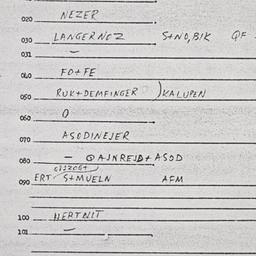 020 NEZER
030 LANGERNOZ S+NO,BIK QF
031 –
040 FO+FE
050 RUK+DEMFINGER ) KALUPEN
060 O
070 ASODINEJER
080 – QAJNREJD+ ASOD
090 ERT S+MUELN AFM
100 HERTNIT
101 –